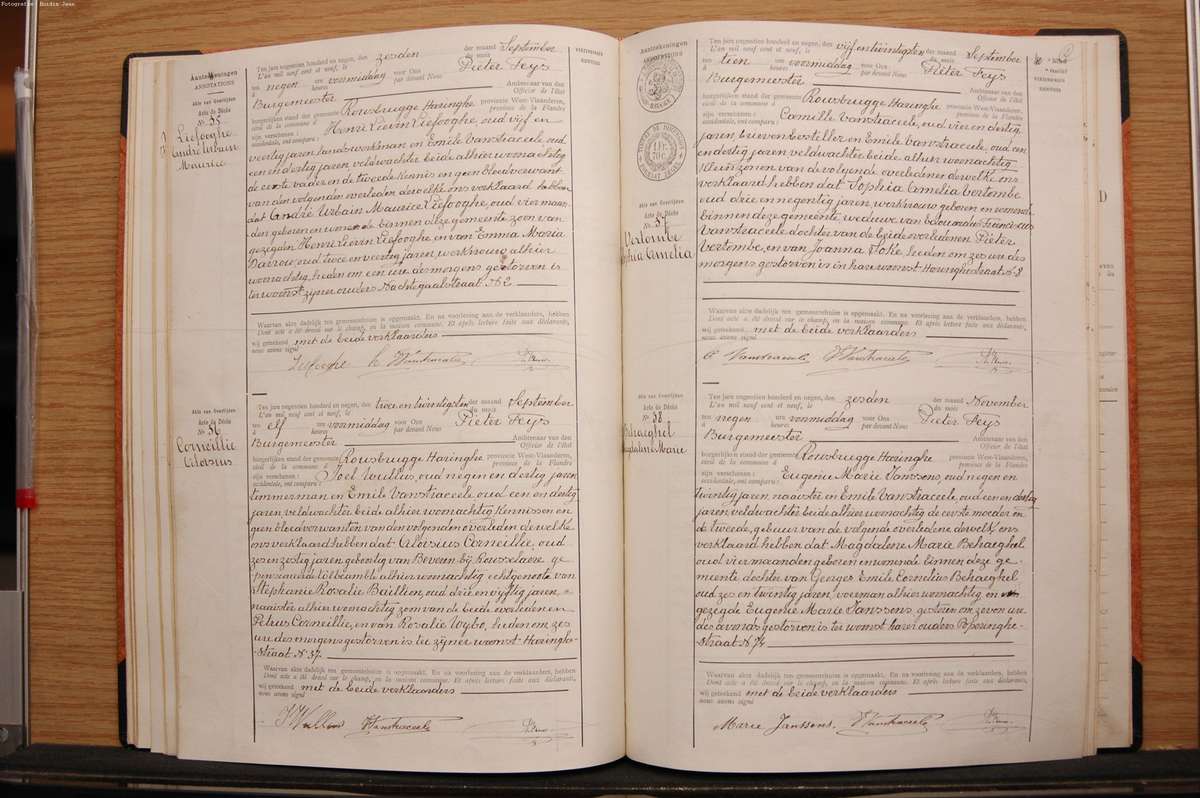 Fotografie : Buidin Jean
Aanteekeningen
ANNOTATIONS
Akte van Overlijden
Acte de Décès
No 55
Liefooghe
André Urbain
Maurice
Ten jare negentien honderd en negen, den zesden der maand September
L'an mil neuf cent et neuf, le du mois
ten negen ure voormiddag voor Ons Pieter Feys
à heures par devant Nous
Burgemeester Ambtenaar van den
Officier de l'état
burgerlijken stand der gemeente Rousbrugge Haringhe provincie West-Vlaanderen,
civil de la commune d province de la Flandre
zijn verschenen : Henri Lievin Liefooghe, oud vijf en
occidentale, ont comparu :
veertig jaren, landswerkman en Emile Vanstraceele, oud
een en dertig jaren, veldwachter beide alhier woonachtig
de eerste vader en de tweede kennis en geen bloedverwant
van den volgenden overleden dewelke ons verklaard hebben
dat André Urbain Maurice Liefooghe, oud vier maan-
den geboren en wonende binnen deze gemeente zoon van
gezegden Henri Lievin Liefooghe en van Emma Maria
oud twee en veertig jaren, werkvrouw alhier
woonachtig, heden om een ure des morgens gestorven is
ter woonst zijner ouders Nachtegaalstraat No 2
Waarvan akte dadelijk ten gemeentehuize is opgemaakt. En na voorlezing aan de verklaarders, hebben
Dont acte a été dressé sur le champ, en la maison commune. Et après lecture faite aux déclarants,
wij geteekend met de beide verklaarders
nous avons signé
Liefooghe h EVanstraceele
Akte van Overlijden
Acte de Décès
No 56
Corneillie
Aloïsius
Ten jare negentien honderd en negen, den twee en twintigsten der maand September
L'an mil neuf cent et neuf, le du mois
ten elf ure voormiddag voor Ons Pieter Feys
à heures par devant Nous
Burgemeester Ambtenaar van den
Officier de l'état
burgerlijken stand der gemeente Rousbrugge Haringhe provincie West-Vlaanderen,
civil de la commune d province de la Flandre
zijn verschenen : Joël Wullus, oud negen en dertig jaren
occidentale, ont comparu :
timmerman en Emile Vanstraceele oud een en dertig
jaren, veldwachter beide alhier woonachtig kennissen en
geen bloedverwanten van den volgenden overleden dewelke
ons verklaard hebben dat Aloïsius Corneillie, oud
zes en zestig jaren, geboortig van Beveren bij Rousselaere ge-
pensioneerd tolbeambte alhier woonachtig echtgenoote van
Stephanie Rosalie Baillien, oud drie en vijftig jaren,
naaister alhier woonachtig zoon van de beide overleden en
Petrus Corneillie, en van Rosalie Wybo, heden om zes
ure des morgens gestorven is ter zijner woonst Haringhe-
-Straat No 37.
Waarvan akte dadelijk ten gemeentehuize is opgemaakt. En na voorlezing aan de verklaarders, hebben
Dont acte a été dressé sur le champ, en la maison commune. Et après lecture faite aux déclarants,
wij geteekend met de beide verklaarders
nous avons signé
EVanstraceele
Aanteekeningen
ANNOTATIONS
Akte van Overlijden
Acte de Décès
No 57
Vertombe
Sophia Amelia
Ten jare negentien honderd en negen, den vijf en twintigsten der maand September
L'an mil neuf cent et neuf, le du mois
ten tien ure voormiddag voor Ons Pieter Feys
à heures par devant Nous
Burgemeester Ambtenaar van den
Officier de l'état
burgerlijken stand der gemeente Rousbrugge Haringhe provincie West-Vlaanderen,
civil de la commune d province de la Flandre
zijn verschenen : Camille Vanstraceele, oud vier en dertig
occidentale, ont comparu :
jaren, brievenbesteller en Emile Vanstraceele, oud een
en dertig jaren, veldwachter beide alhier woonachtig
kleinzonen van de volgende overledene dewelke ons
verklaard hebben dat Sophia Amelia Vertombe
oud drie en negentig jaren, werkvrouw geboren en wonende
binnen deze gemeente weduwe van Franciscus
Vanstraceele dochter van de beide overledenen Pieter
Vertombe, en van Joanna Foke, heden om zes ure des
morgens gestorven is in hare woonst Haringhestraat No 8
Waarvan akte dadelijk ten gemeentehuize is opgemaakt. En na voorlezing aan de verklaarders, hebben
Dont acte a été dressé sur le champ, en la maison commune. Et après lecture faite aux déclarants,
wij geteekend met de beide verklaarders
nous avons signé
C Vanstraceele EVanstraceele
Akte van Overlijden
Acte de Décès
No 58
Behaeghel
Magdalene Marie
Ten jare negentien honderd en negen, den zesden der maand November
L'an mil neuf cent et neuf, le du mois
ten negen ure voormiddag voor Ons Pieter Feys
à heures par devant Nous
Burgemeester Ambtenaar van den
Officier de l'état
burgerlijken stand der gemeente Rousbrugge Haringhe provincie West-Vlaanderen,
civil de la commune d province de la Flandre
zijn verschenen : Eugenie Marie Janssens, oud negen en
occidentale, ont comparu :
twintig jaren, naaister en Emile Vanstraceele, oud een en dertig
jaren, veldwachter beide alhier woonachtig de eerste moeder en
de tweede, gebuur van de volgende overledene dewelke ons
verklaard hebben dat Magdalene Marie Behaeghel
oud vier maanden geboren en wonende binnen deze ge-
meente dochter van Georges Emile Cornelius Behaeghel
oud zes en twintig jaren, voerman alhier woonachtig en
gezegde Eugenie Marie Janssens, gisteren om zeven ure
des avonds gestorven is ter woonst harer ouders Poperinghe-
-Straat No 74
Waarvan akte dadelijk ten gemeentehuize is opgemaakt. En na voorlezing aan de verklaarders, hebben
Dont acte a été dressé sur le champ, en la maison commune. Et après lecture faite aux déclarants,
wij geteekend met de beide verklaarders
nous avons signé
Marie Janssens. EVanstraceele